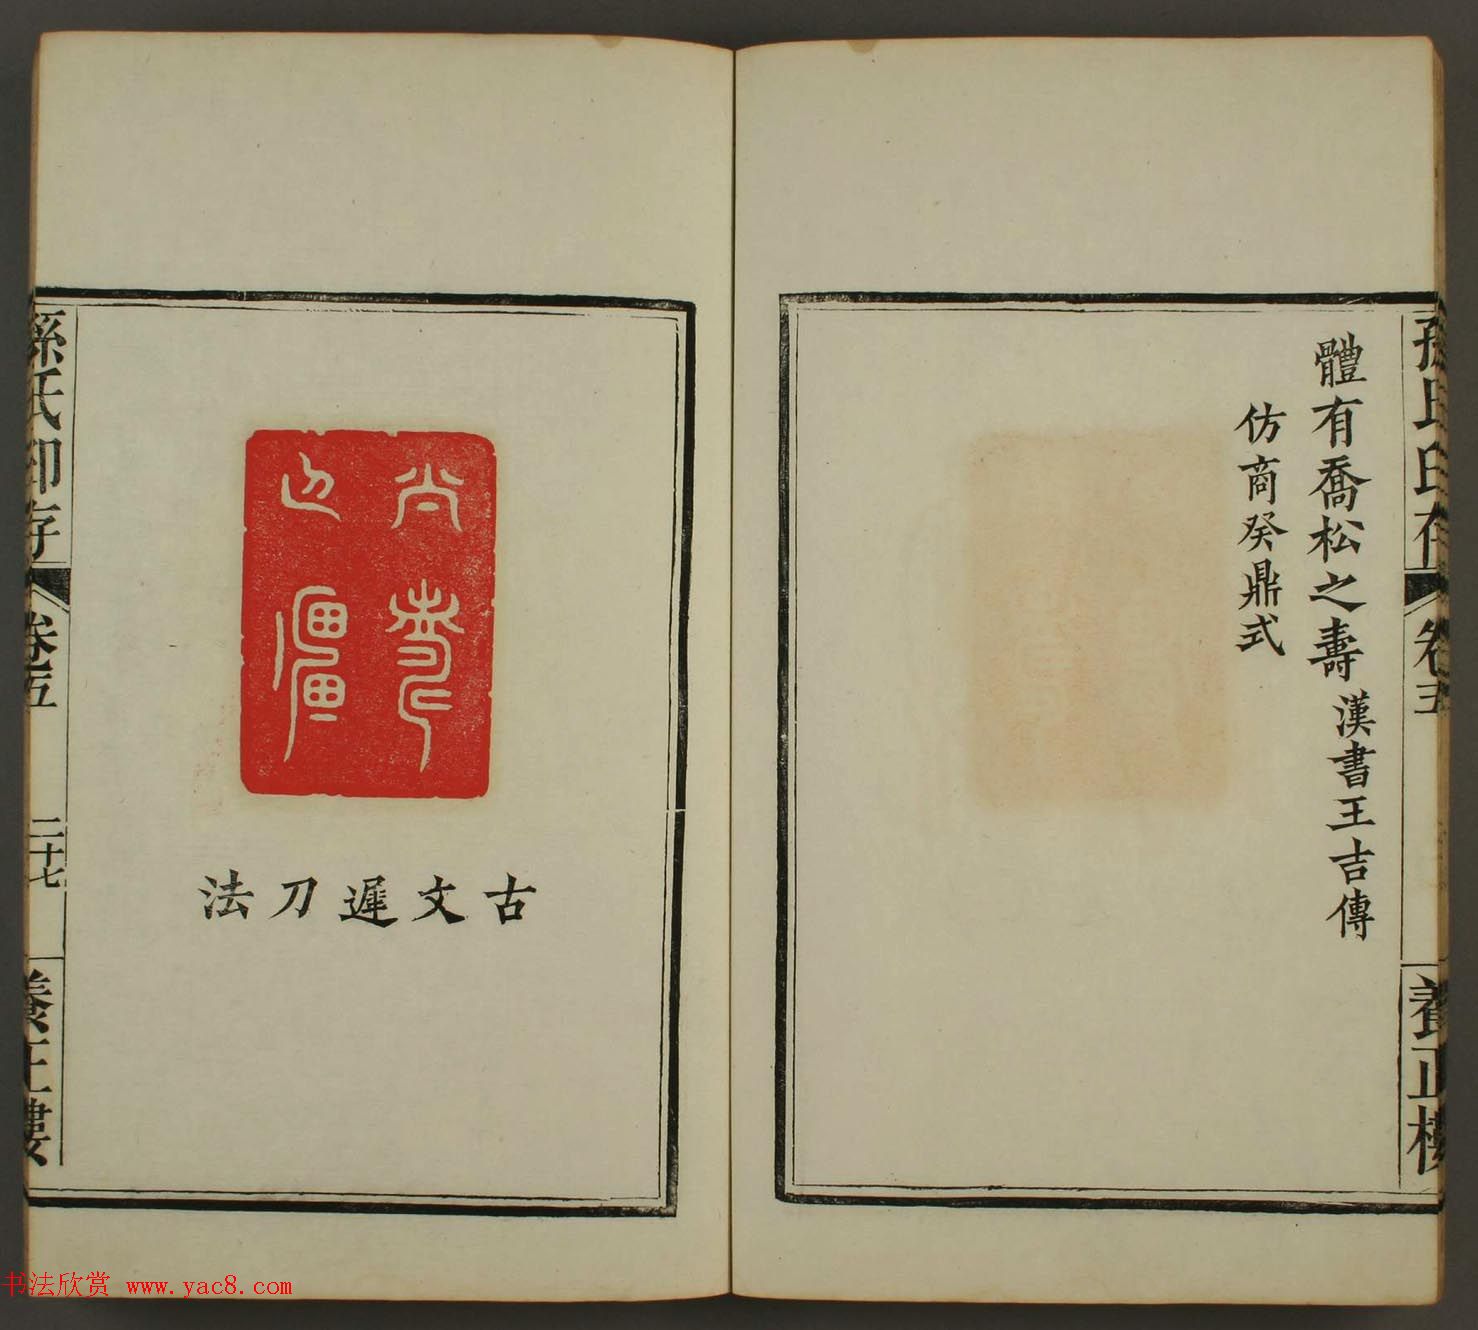 體有喬松之壽 漢書王吉傳
仿商癸鼎式
孫氏印存
卷五
養正樓
古文遲刀法
孫氏印存
卷五
二十七
養正樓
书法欣赏 www.yac8.com